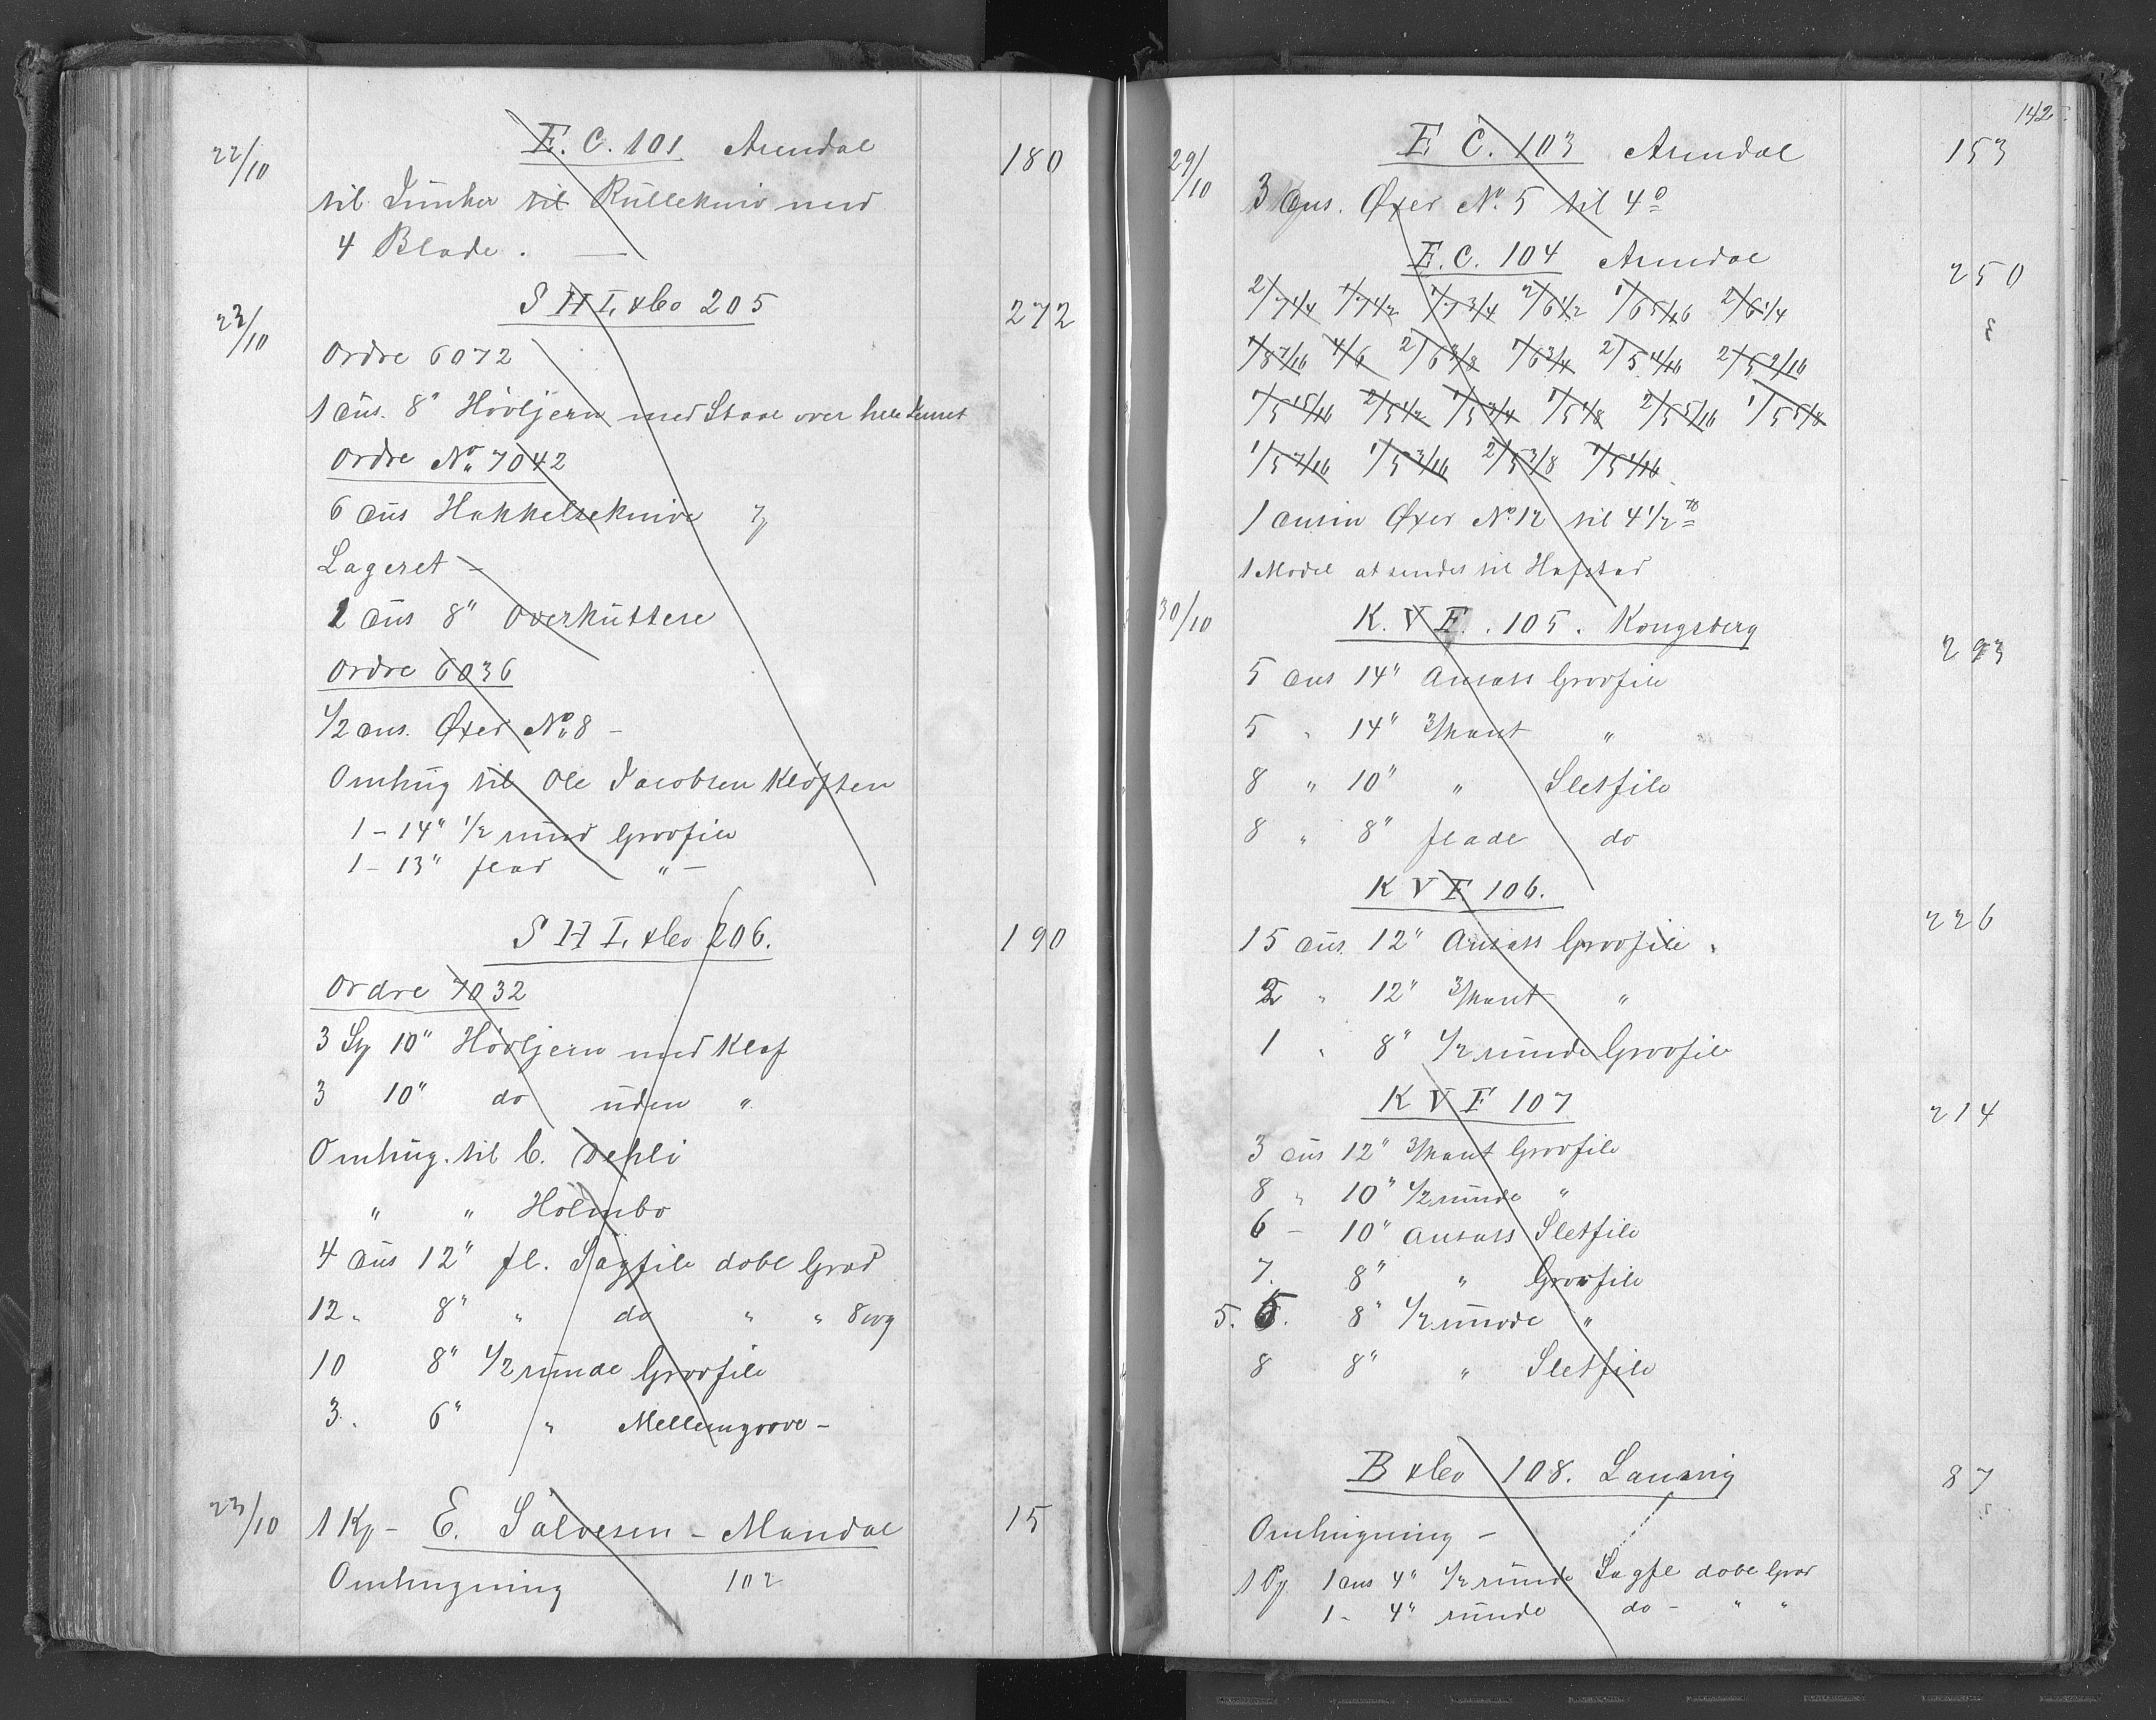 22/10 E. C. 101 Arendal 180
til Junker til Rullekniv med
4 Blade. —
23/10 S H I. & Co 205 272
Ordre 6072
1 dus. 8" Høvljern med Staal over hele
Ordre No. 7042
6 dus Hakkelseknive
Lageret –
1 dus 8" Overkuttere
Ordre 6036
1/2 dus. Øxer No. 8 –
Omhug til Ole Jacobsen Kløften
1 – 14" 1/2 rund Grovfile
1 – 13" flad " –
S H I. & Co 206. 190
Ordre 7032
3 St 10" Høvljern med Klaf
3 10" do uden "
Omhug. til C. Dehli
" " Holmbo
4 dus 12" fl. Sagfile dobl Grad
12 " 8" " do " "
10 8" 1/2 runde Grovfile
3. 6" " Mellemgrove –
23/10 1 Kp – E. Salvesen – Mandal 15
Omhugning 102
142.
29/10 E C. 103 Arendal 153
3 dus. Øxer No. 5 til 4
E. C. 104 Arendal 250
2/7 1/4 1/7 1/2 1/7 3/4 2/6 1/2 1/6 5/16 2/6 1/4
1/8 7/16 4/6 2/6 3/8 1/6 3/4 2/5 4/16 2/5 2/16
1/5 15/16 2/5 1/2 1/5 3/4 1/5 1/8 2/5 5/16 1/5 5/8
1/5 7/16 1/5 3/16 2/5 3/8 1/5 1/16
1 dusin Øxer No. 12 til 4 1/2
1 Model at sendes til Hafstad
30/10 K. V F. 105. Kongsberg 293
5 dus 14" Ansats Grovfile
5 " 14" 3/kant "
8 " 10" " Sletfile
8 " 8" flade do
K V F 106. 226
15 dus. 12" Ansats Grovfile "
2 " 12" 3/kant "
1 " 8" 1/2 runde Grovfile
K V F 107 214
3 dus 12" 3/kant Grovfile
8 " 10" 1/2 runde "
6 – 10" Ansats Sletfile
7. 8" " Grovfile
5. 5. 8" 1/2 runde "
8 8" " Sletfile
B & Co 108. Laurvig 87
Omhugning –
1 Pj 1 dus 4" 1/2 runde Sagfl dobl Grad
1 – 4" runde do – " "